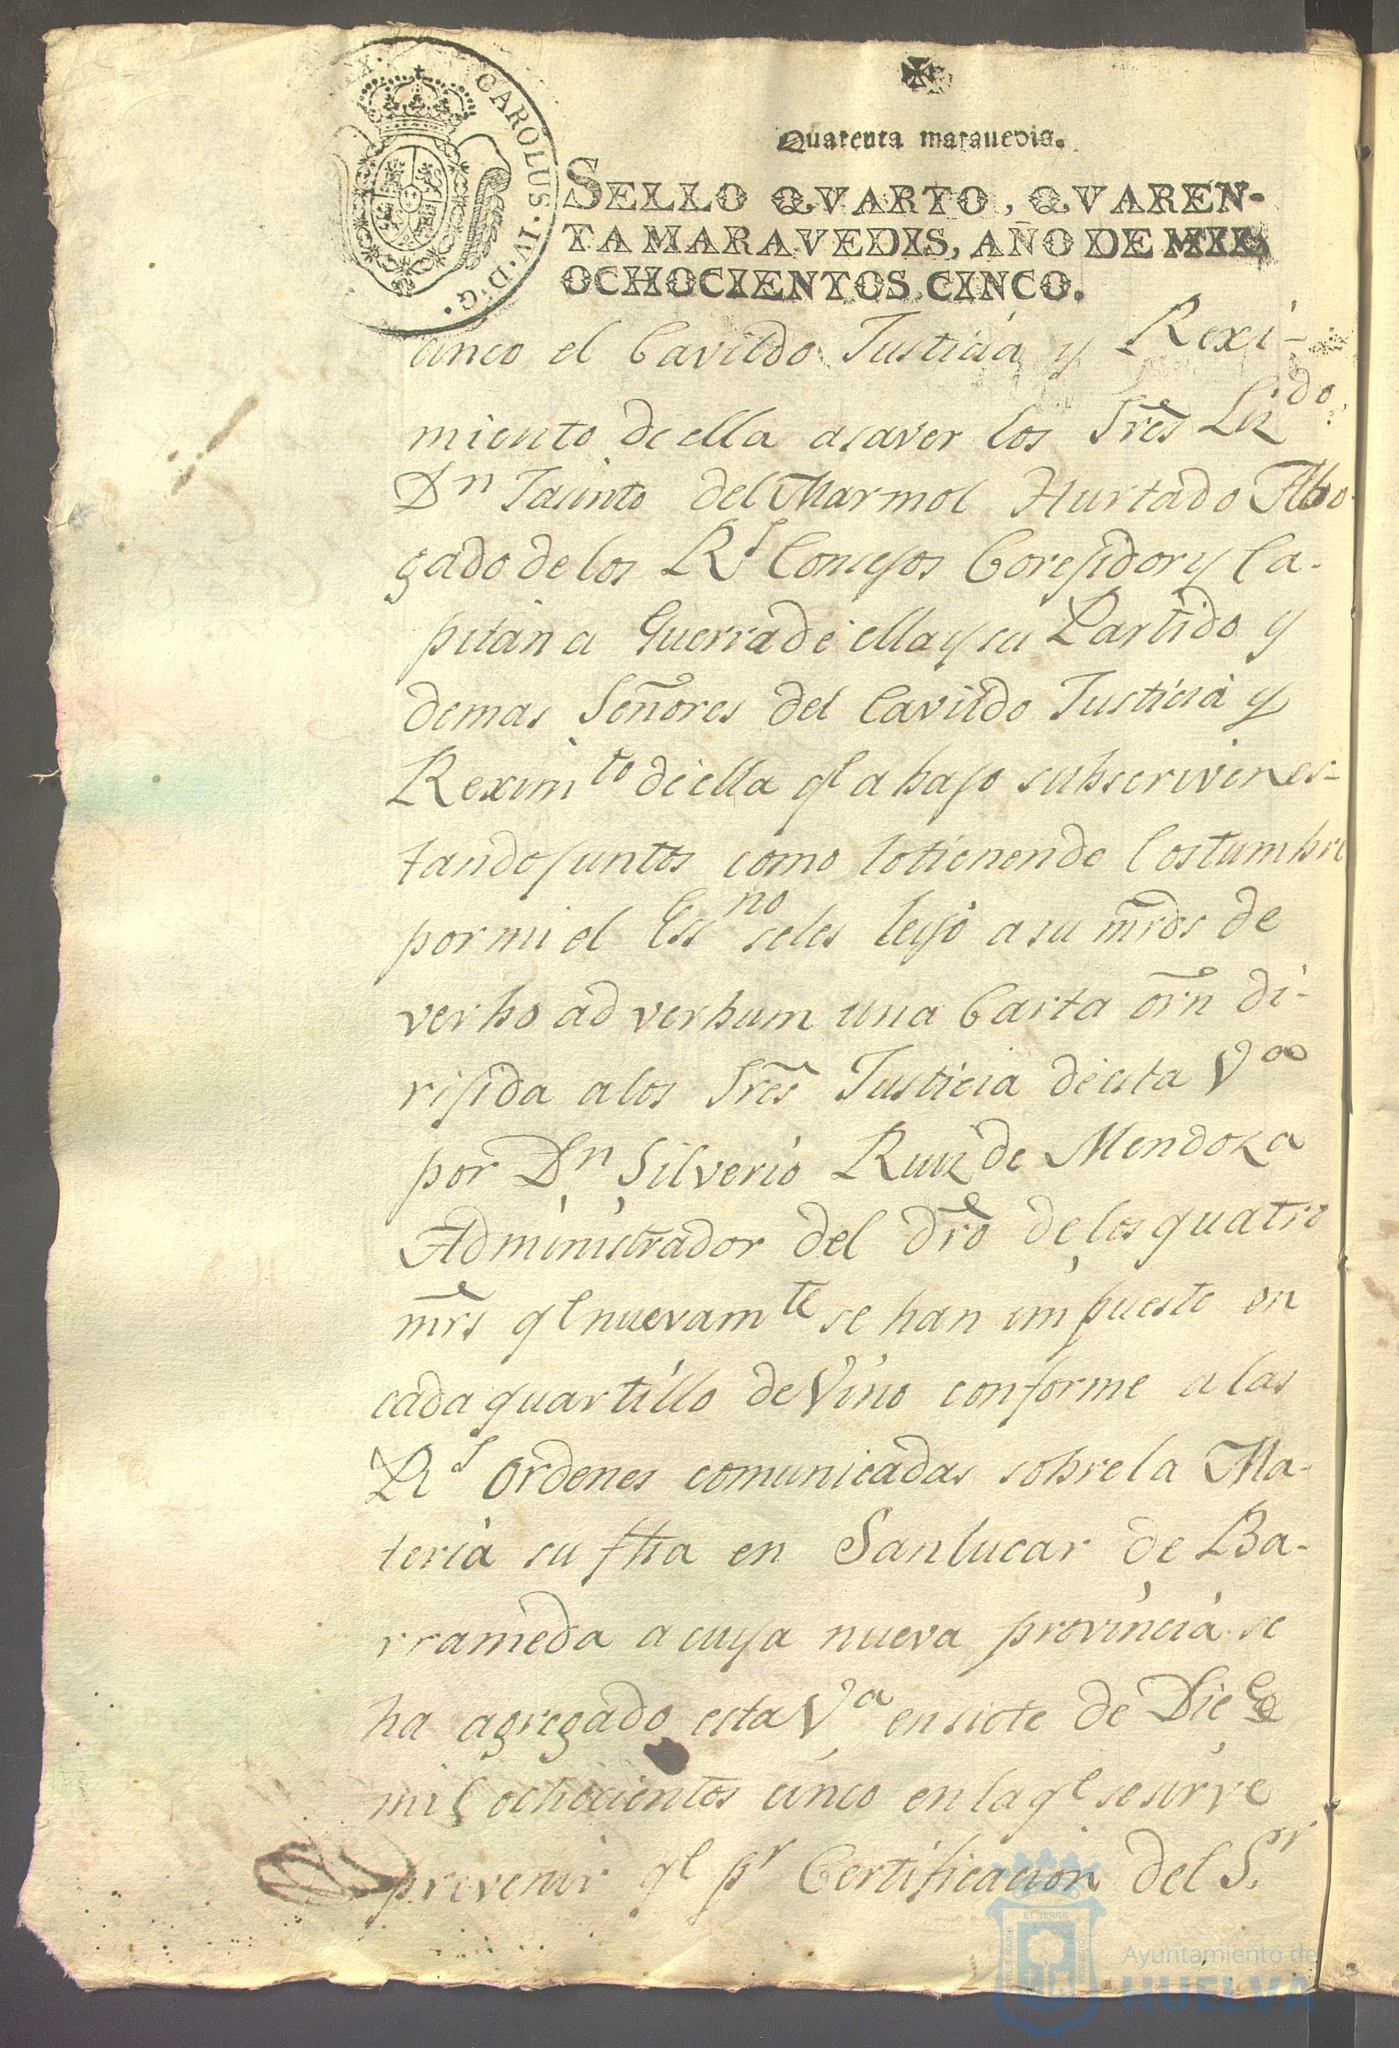 CAROLUS · IV · D · G ·
Quarenta maravedis.
SELLO QVARTO, QVAREN-
TA MARAVEDIS, AÑO DE MIL
OCHOCIENTOS CINCO.
cinco el Cavildo Justicia y Rexi-
miento de ella asaver los Sres Lizdo
Dn Jacinto del Marmol Hurtado Abo-
gado de los Rs Consejos Corejidor y Ca-
pitan a Guerra de ella y su Partido y
demas Señores del Cavildo Justicia y
Reximto de ella qe abajo subscriven es-
tando juntos como lo tienen de Costumbre
por mi el Essno seles leyó a su mrds de
verbo ad verbum una Carta orn di-
rijida a los Sres Justicia de esta Va
por Dn Silverio Ruiz de Mendoza
Administrador del dro de los quatro
mrs qe nuevamte se han impuesto en
cada quartillo de Vino conforme a las
Rs Ordenes comunicadas sobre la Ma-
teria su fha en Sanlucar de Ba-
rrameda a cuya nueva provincia se
ha agregado esta Va en siete de Dice
mil ochocientos cinco en la qe se sirve
prevenir qe pr Certificacion del Sr
Ayuntamiento de
HUELVA